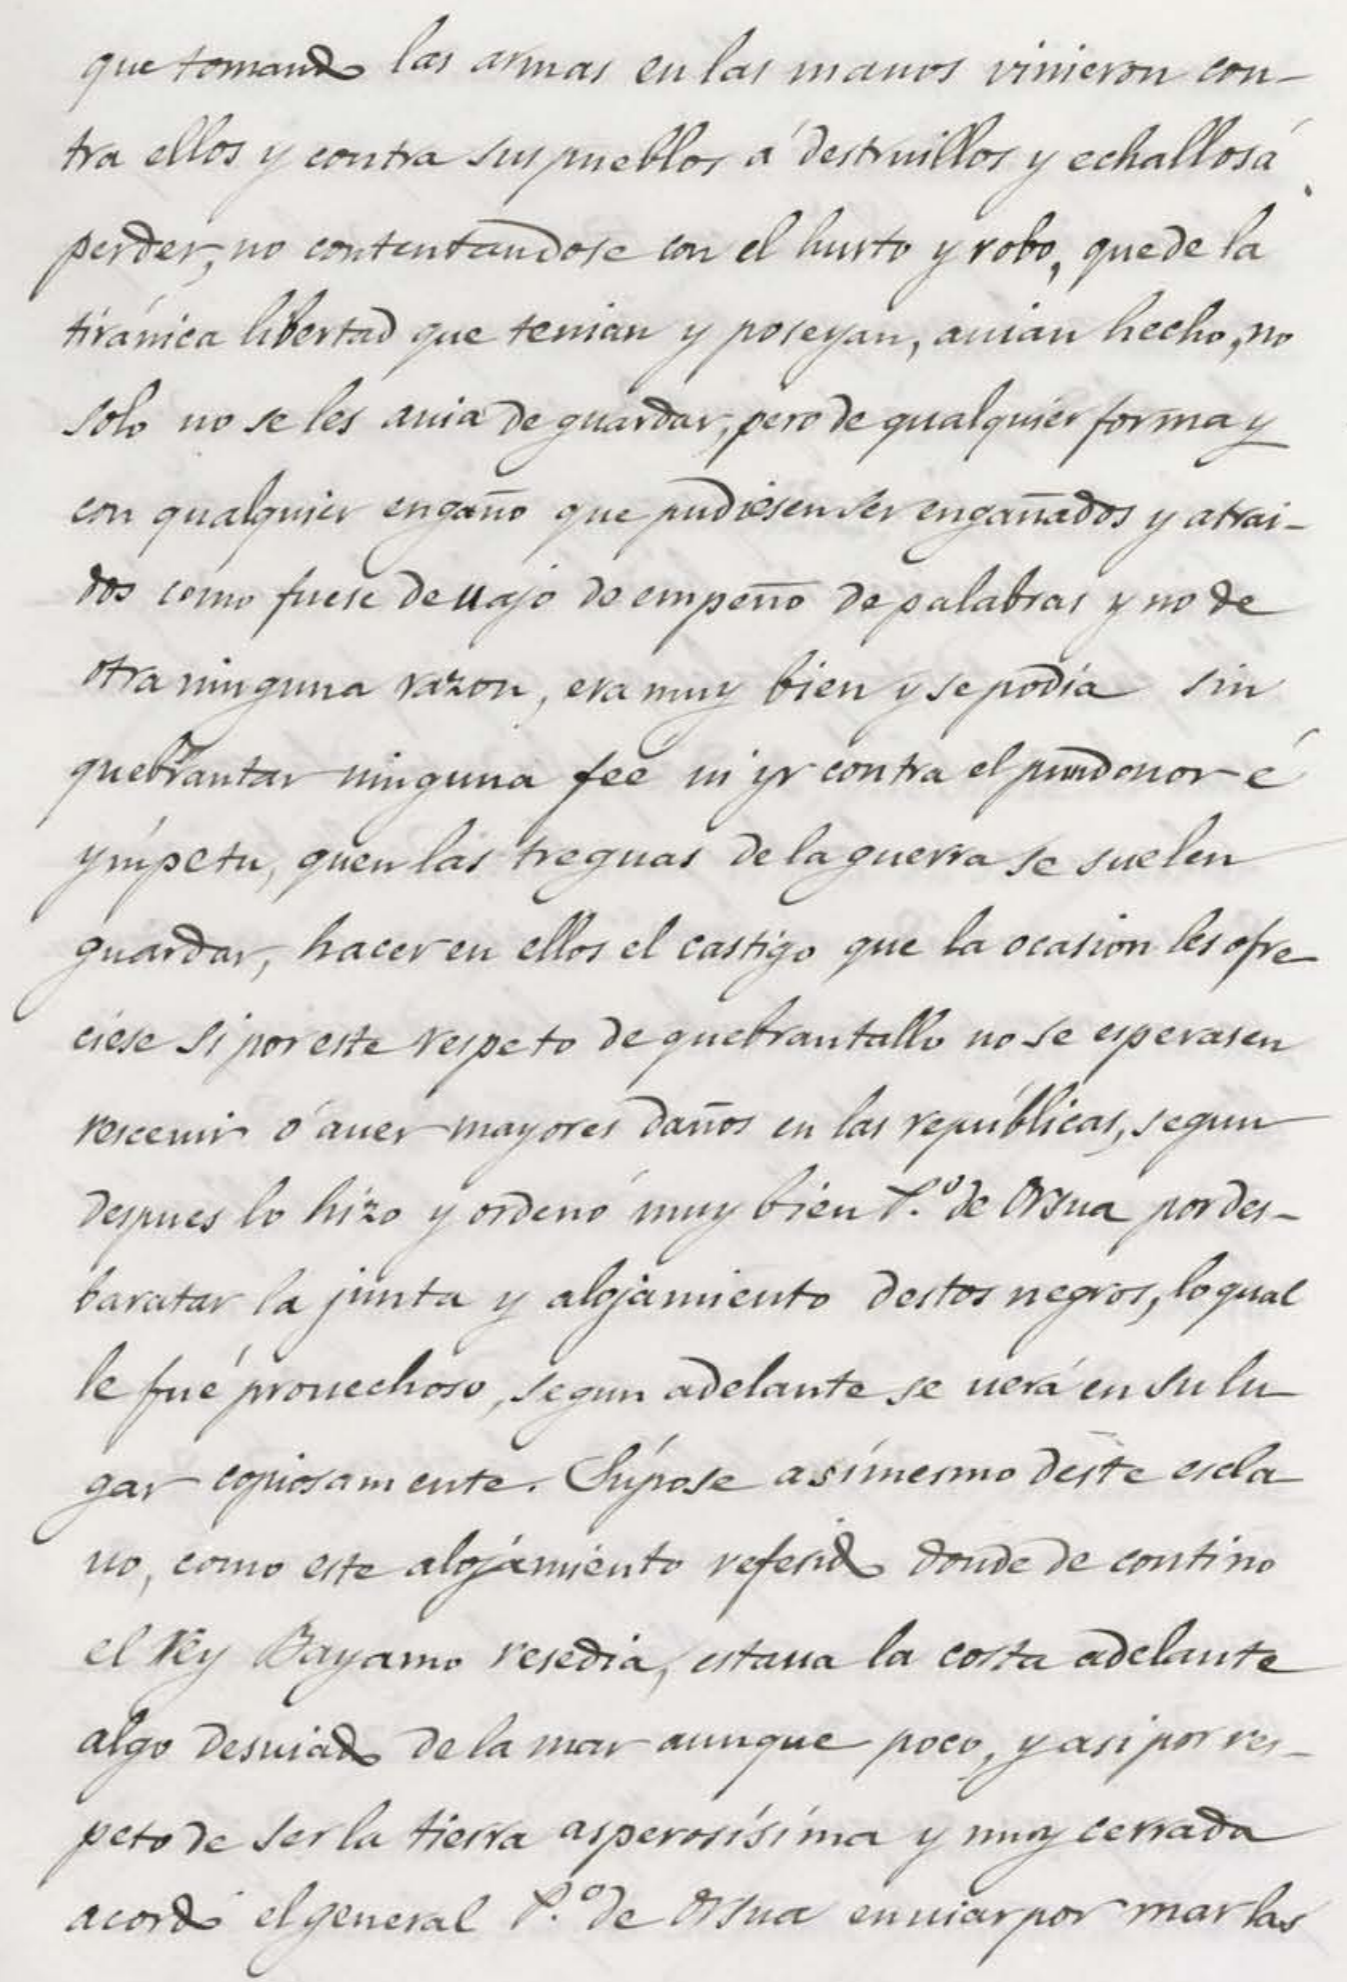 que tomando las armas en las manos vinieron con-
tra ellos y contra sus pueblos á destruillos y echallos á
perder, no contentandose con el hurto y robo, que de la
tiránica libertad que tenian y poseyan, auian hecho, no
solo no se les auia de guardar, pero de qualquier forma y
con qualquier engaño que pudiesen ser engañados y atrai-
dos como fuese deuajo de empeño de palabras y no de
otra ninguna razon, era muy bien y se podia sin
quebrantar ninguna fee ni yr contra el pundonor é
ympetu, quen las treguas de la guerra se suelen
guardar, hacer en ellos el castigo que la ocasion les ofre
ciese si por este respeto de quebrantallo no se esperasen
resceuir ó auer mayores daños en las repúblicas, segun
despues lo hizo y ordenó muy bien P.º de Orsua por des-
baratar la junta y alojamiento destos negros, lo qual
le fué prouechoso, segun adelante se uerá en su lu
gar copiosamente. Súpose asímesmo deste escla
uo, como este alojamiento referido donde de contino
el Rey Bayamo resedia, estaua la costa adelante
algo desuiado de la mar aunque poco, y asi por res-
peto de ser la tierra asperosísima y muy cerrada
acordó el general P.º de Orsua enuiar por mar las